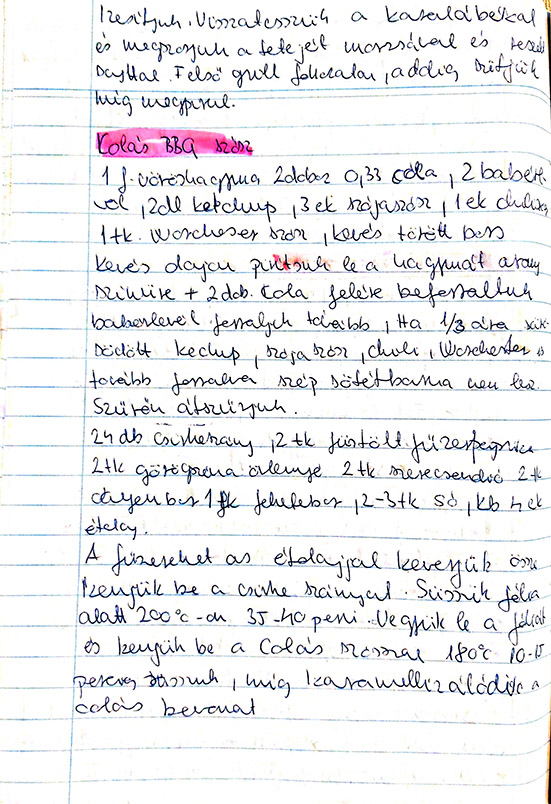 Visszatesszük a karalábékat
és megszorjuk a tetejét mozsával és reszelt
sajttal. Felső grill fokozaton, addig sütjük
míg megpirul.
Kolás BBQ szósz
1 f. vöröshagyma 2doboz 0,33 cola, 2 babér
vel, 2dl ketchup, 3 ek szójaszósz, 1 ek
1 tk. Worchester szósz, kevés törött bors
kevés olajon pirítsuk le a hagymát arany
színűre + 2dob. Cola felére beforraltuk
babérlevél forraljuk tovább, Ha 1/3 ára sűrű
södött kechup, szója szósz, chili, Worchester s
tovább forralva szép sötétbarna nem lesz
Szűrőn átszűrjük.
24 db csirkeszárny, 2 tk füstölt fűszerpaprika
2tk görögszéna őrlemye 2 tk szerecsendió 2 tk
cayen bors 1 tk fehérbors, 2-3 tk só, kb 4 ek
étolaj.
A fűszereket az étolajjal keverjük össze
Kenjük be a csirke szárnyat. Süssük fólia
alatt 200°C-on 35-40 perc. Vegyük le a fóliát
és kenjük be a Colás szósszal 180°C 10-15
percig süssük, míg karamellizálódik a
colás bevonat